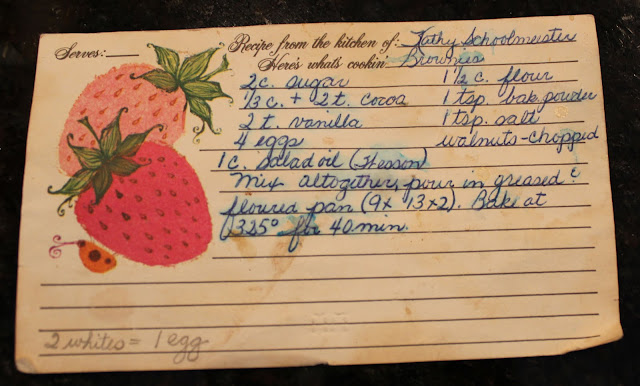 Serves:
Recipe from the kitchen of: Kathy Schoolmeister
Here's what's cookin: Brownies
2 c. sugar 1 1/2 c. flour
1/3 c. + 2 t. cocoa 1 tsp. bak. powder
2 t. vanilla 1 tsp. salt
4 eggs walnuts - chopped
1 c. salad oil (Wesson)
Mix altogether, pour in greased &
floured pan (9 x 13 x 2). Bake at
325° for 40 min.
2 whites = 1 egg